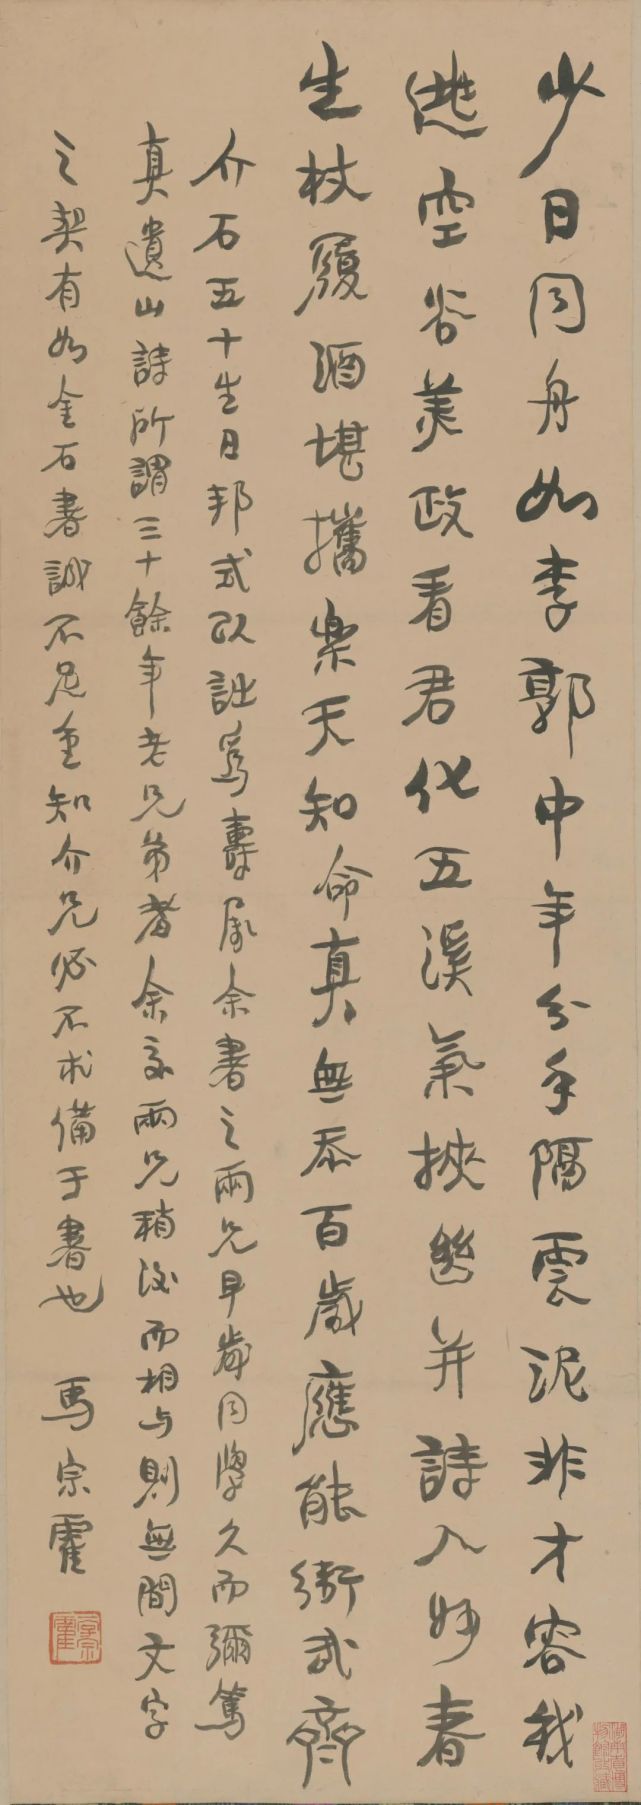 少日同舟如李郭中年分手隔雲泥非才容我
逃空谷美政看君化五溪氣挾幽并詩入妙春
生杖履酒堪攜樂天知命真無忝百歲應能衛武齊
介石五十生日邦式以詩爲壽屬余書之兩兄早歲同學久而彌篤
真遺山詩所謂三十餘年老兄弟者余交兩兄稍後而相与則無間文字
之契有如金石書誠不足重知介兄必不求備于書也 馬宗霍